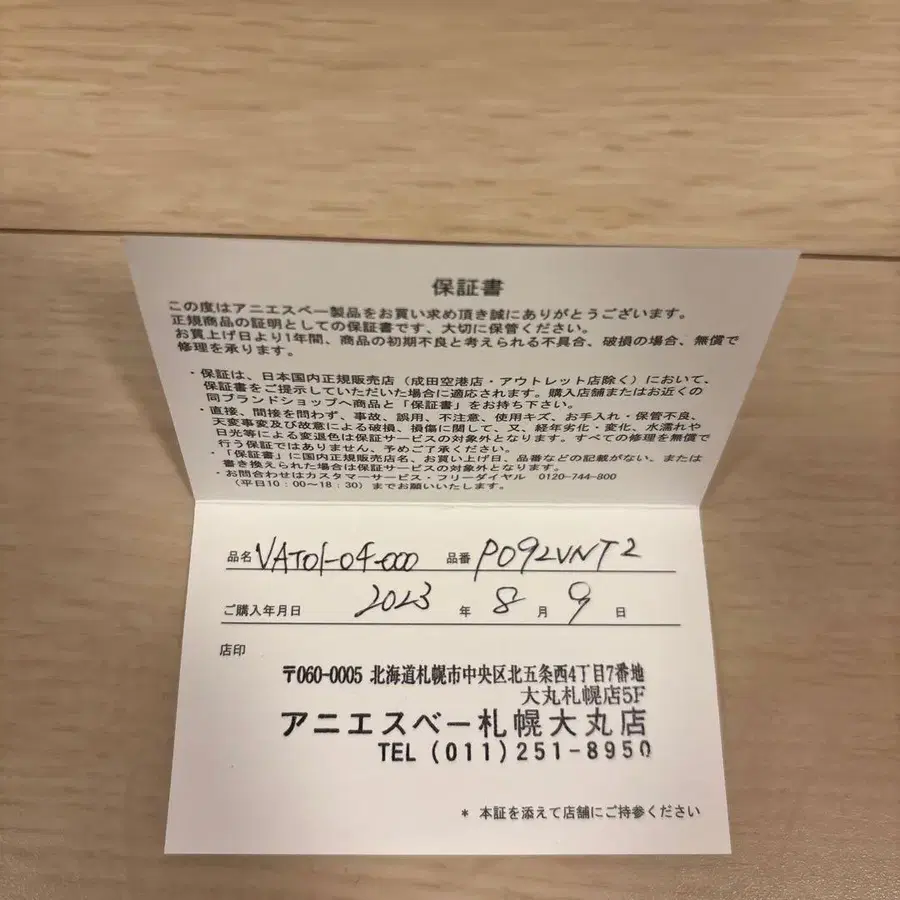 保証書
この度はアニエスベー製品をお買い求め頂き誠にありがとうございます。
正規商品の証明としての保証書です、大切に保管ください。
お買上げ日より1年間、商品の初期不良と考えられる不具合、破損の場合、無償で
修理を承ります。
・保証は、日本国内正規販売店（成田空港店・アウトレット店除く）において、
保証書をご提示していただいた場合に適応されます。購入店舗またはお近くの
同ブランドショップへ商品と「保証書」をお持ち下さい。
・直接、間接を問わず、事故、誤用、不注意、使用キズ、お手入れ・保管不良、
天変事変及び故意による破損、損傷に関して、又、経年劣化・変化、水濡れや
日光等による変退色は保証サービスの対象外となります。すべての修理を無償で
行う保証ではありません、予めご了承ください。
・「保証書」に国内正規販売店名、お買い上げ日、品番などの記載がない、または
書き換えられた場合は保証サービスの対象外となります。
・お問合わせはカスタマーサービス・フリーダイヤル 0120-744-800
（平日10：00～18：30）までお願いいたします。
品名 VAT01-04-000 品番 P092VNT2
ご購入年月日 2023 年 8 月 9 日
店印
〒060-0005 北海道札幌市中央区北五条西4丁目7番地
大丸札幌店5F
アニエスベー札幌大丸店
TEL (011)251-8950
* 本証を添えて店舗にご持参ください